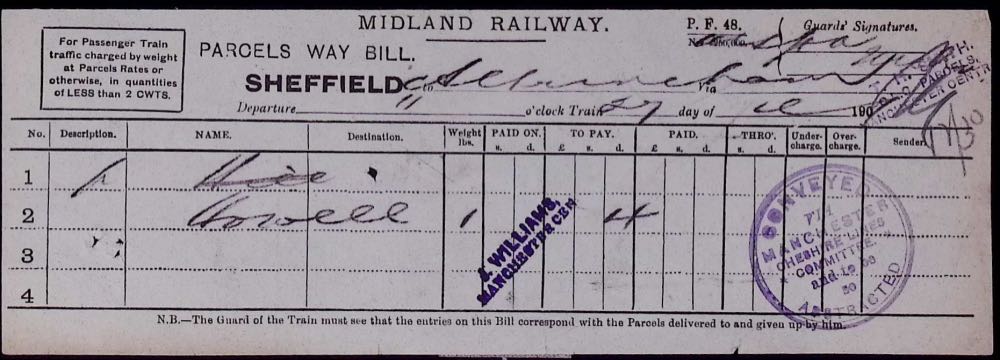 MIDLAND RAILWAY.
P. F. 48.
Guards' Signatures.
For Passenger Train
traffic charged by weight
at Parcels Rates or
otherwise, in quantities
of LESS than 2 CWTS.
PARCELS WAY BILL.
SHEFFIELD to Altrincham Via
Departure 11 o'clock Train 27 day of 190
PARCELS,
MANCHESTER CENTR
No. Description. NAME. Destination. Weight lbs. PAID ON. TO PAY. PAID. THRO'. Under-charge. Over-charge. Sender.
s. d. £ s. d. £ s. d. s. d.
1
2 1 4
3
4
WILLIAMS,
MANCHESTER CEN
CONVEYED
VIA
MANCHESTER
CHESHIRE LINES
COMMITTEE.
ABSTRACTED
N.B.—The Guard of the Train must see that the entries on this Bill correspond with the Parcels delivered to and given up by him.